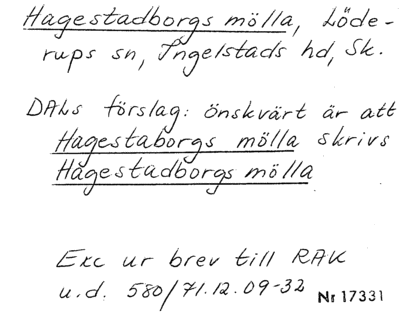 Hagestadborgs mölla, Löde-
rups sn, Ingelstads hd, Sk.
DALs förslag: önskvärt är att
Hagestaborgs mölla skrivs
Hagestadborgs mölla
Exc ur brev till RAK
u.d. 580/71.12.09-32 Nr 17331